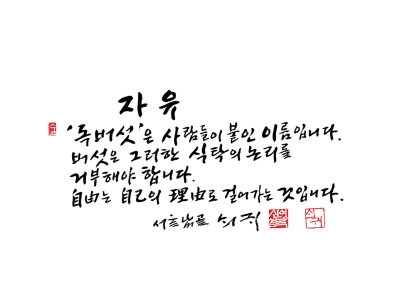 자유
'독버섯'은 사람들이 붙인 이름입니다.
버섯은 그러한 식탁의 논리를
거부해야 합니다.
自由는 自己의 理由로 걸어가는 것입니다.